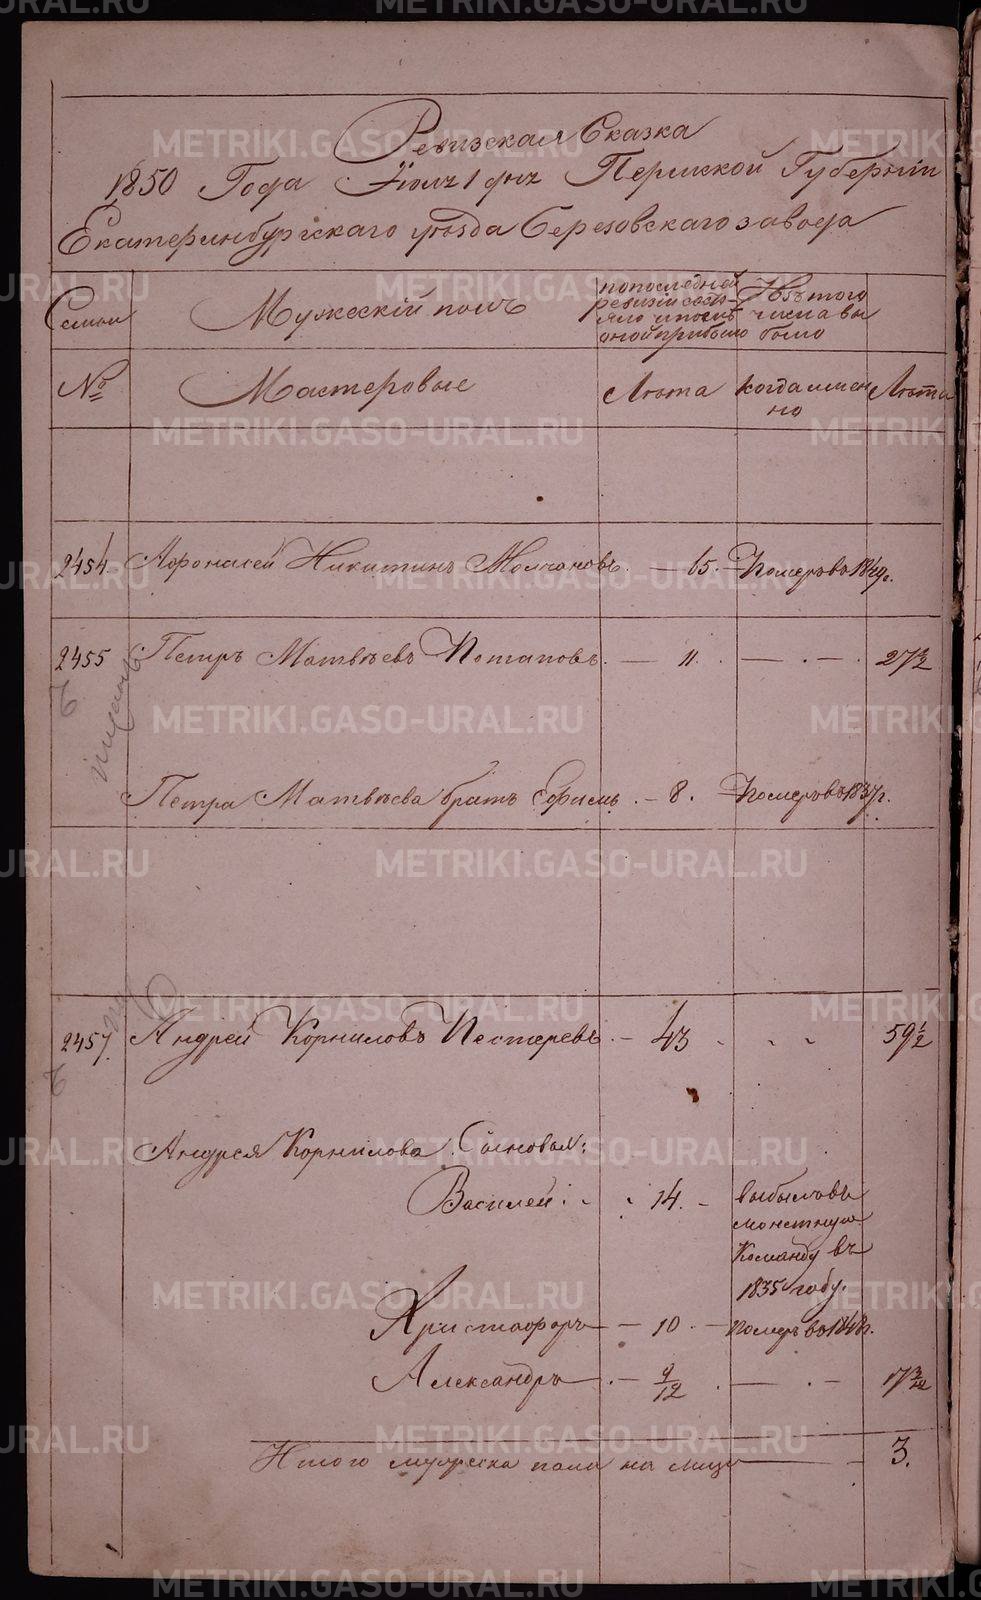 Ревизская Сказка
1850 Года Іюля 1 дня Пермской Губерніи
Екатеринбургскаго уѣзда Березовскаго завода
Семьи
Мужескій полъ
по последней ревизіи состояло и после оной прибыло
Изъ того числа выбыло
№
Мастеровые
Лѣта
когда именно
Лѣта
2454. Афонасей Никитинъ Молчановъ. — 65. — Померъ въ 1849г.
2455 Петръ Матвѣевъ Потаповъ. — 11. — . — . 27
Петра Матвѣева братъ Ефимъ. — 8. — Померъ въ 1837г.
2457. Андрей Корниловъ Нестеревъ. — 43 59 1/2
Андрея Корнилова Сыновья:
Василей. 14. — выбылъ въ
монетную
Команду въ
1835 году.
Христофоръ — 10. — померъ въ
Александръ. — 9/12 . — . — 17
Итого мужеска пола на лицо — 3.
METRIKI.GASO-URAL.RU